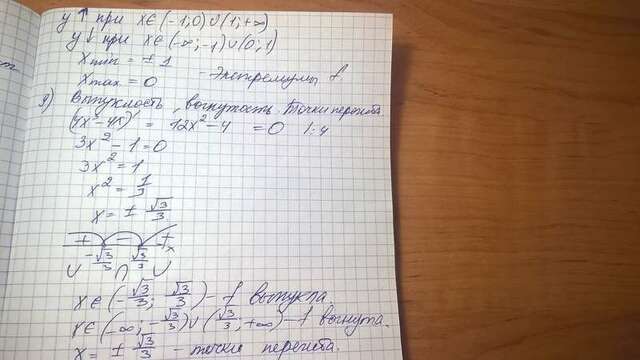 y↑ при x∈(-1;0)∪(1;+∞)
y↓ при x∈(-∞;-1)∪(0;1)
Xmin = ±1
Xmax = 0 - Экстремумы f
9) Выпуклость, вогнутость. Точки перегиба.
(4x³-4x)' = 12x²-4 = 0 |:4
3x²-1=0
3x²=1
x²=1/3
x=± √3/3
+ - + x
-√3/3 √3/3
∪ ∩ ∪
x∈(-√3/3; √3/3) - f выпукла.
x∈(-∞; -√3/3)∪(√3/3; +∞) - f вогнута.
x= ± √3/3 - точки перегиба.